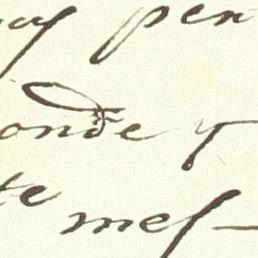 ay pen
onde y
te
mes